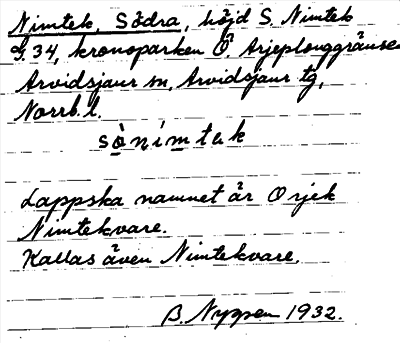 Nimtek, Södra, höjd S. Nimtek
G. 34, kronoparken Ö. Arjeplouggränsen
Arvidsjaur sn, Arvidsjaur tg,
Norrb. l.
sònimtek
Lappska namnet är Orjek
Nimtekvare.
Kallas även Nimtekvare.
B. Nyppen 1932.